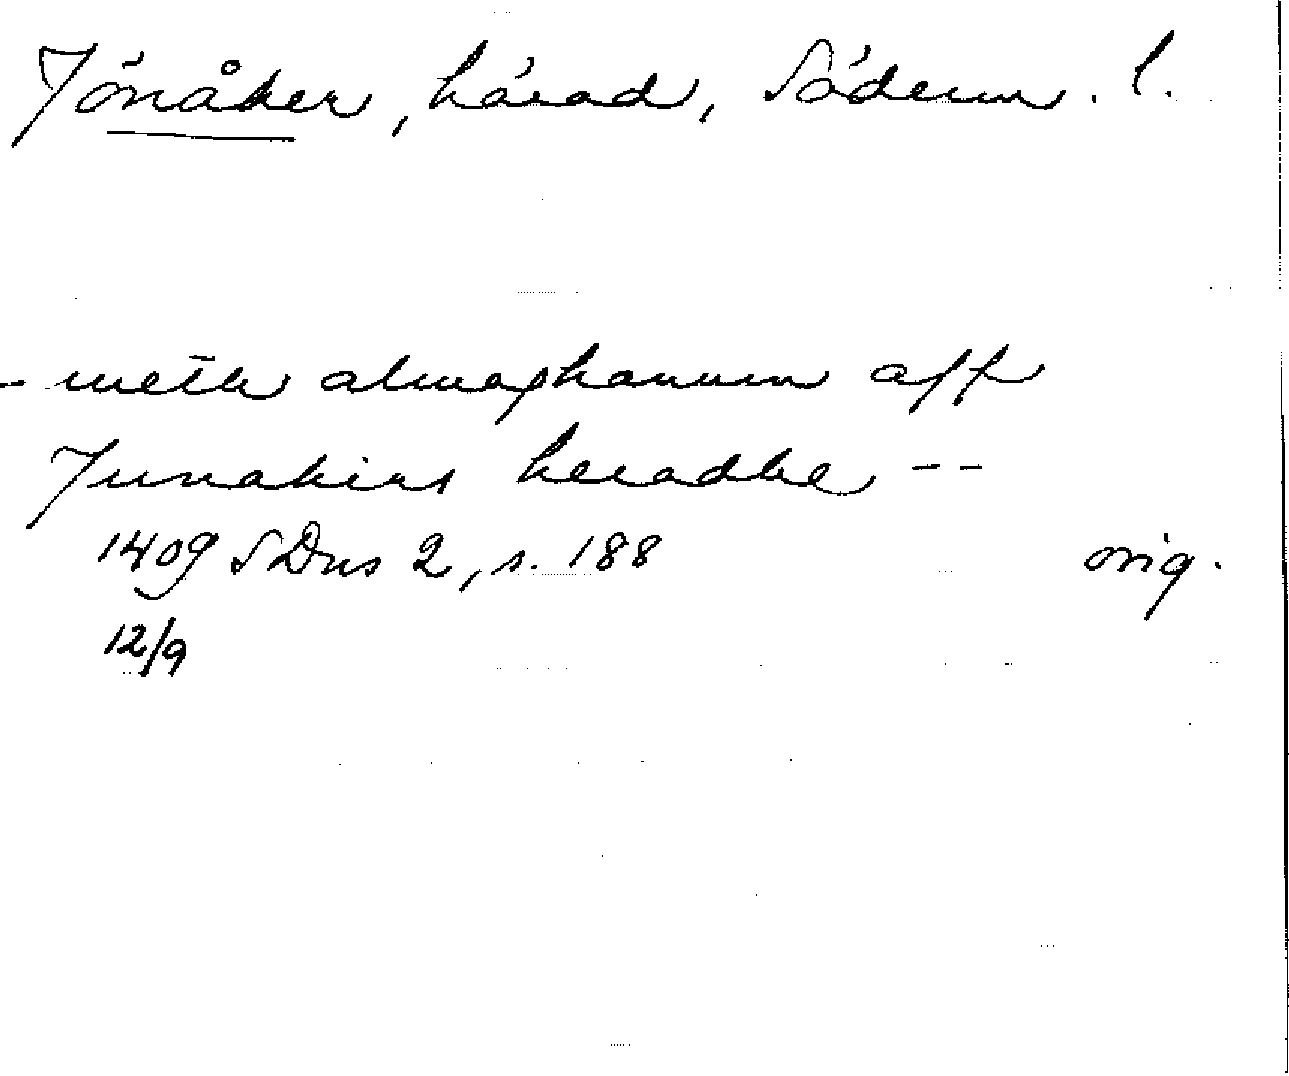 Jönåker, härad, Söderm. l.
- meth almoghanum aff
Junakirs heradhe --
1409 SDns 2, s. 188 orig.
12/9